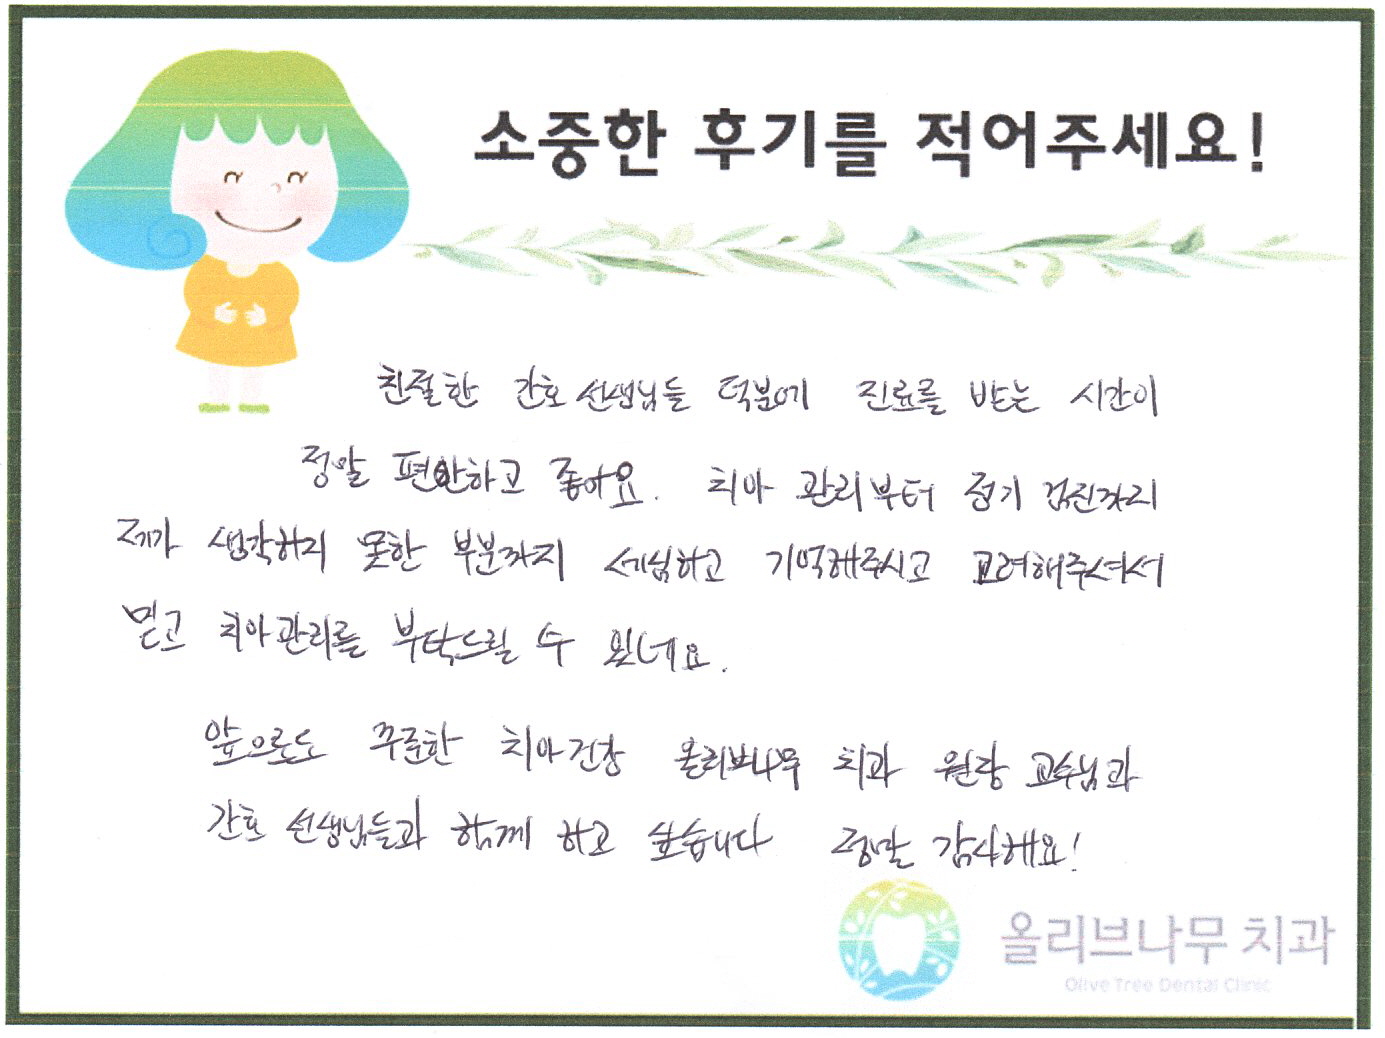 소중한 후기를 적어주세요!
친절한 간호 선생님들 덕분에 진료를 받는 시간이
정말 편안하고 좋아요. 치아 관리부터 정기 검진까지
제가 생각하지 못한 부분까지 세심하고 기억해주시고 고려해주셔서
믿고 치아관리를 부탁드릴 수 있네요.
앞으로도 꾸준한 치아건강 올리브나무 치과 원장 교수님과
간호 선생님들과 함께 하고 싶습니다 정말 감사해요!
올리브나무 치과
Olive Tree Dental Clinic